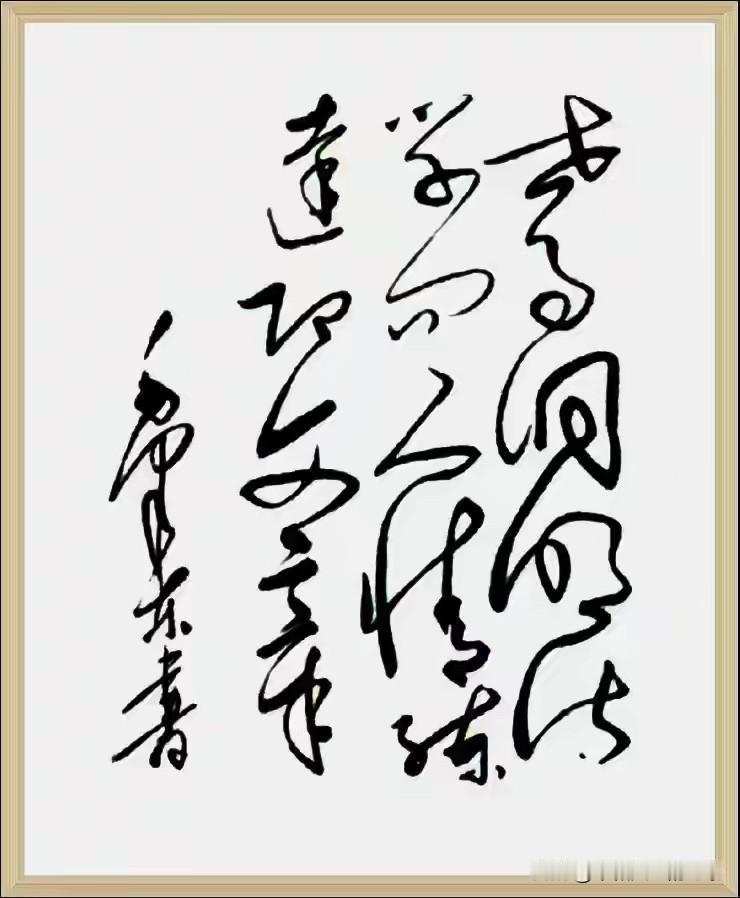 世事洞明皆
学问人情练
達即文章
毛泽东書